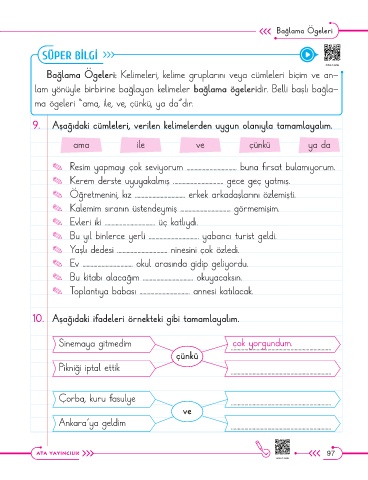 Bağlama Ögeleri
SÜPER BİLGİ
Bağlama Ögeleri: Kelimeleri, kelime gruplarını veya cümleleri biçim ve an-
lam yönüyle birbirine bağlayan kelimeler bağlama ögeleridir. Belli başlı bağla-
ma ögeleri "ama, ile, ve, çünkü, ya da"dır.
9. Aşağıdaki cümleleri, verilen kelimelerden uygun olanıyla tamamlayalım.
ama ile ve çünkü ya da
Resim yapmayı çok seviyorum ........................ buna fırsat bulamıyorum.
Kerem derste uyuyakalmış ........................ gece geç yatmış.
Öğretmenini, kız ........................ erkek arkadaşlarını özlemişti.
Kalemim sıranın üstendeymiş ........................ görmemişim.
Evleri iki ........................ üç katlıydı.
Bu yıl binlerce yerli ........................ yabancı turist geldi.
Yaşlı dedesi ........................ ninesini çok özledi.
Ev ........................ okul arasında gidip geliyordu.
Bu kitabı alacağım ........................ okuyacaksın.
Toplantıya babası ........................ annesi katılacak.
10. Aşağıdaki ifadeleri örnekteki gibi tamamlayalım.
Sinemaya gitmedim
çok yorgundum.
çünkü
Pikniği iptal ettik
Çorba, kuru fasulye
ve
Ankara'ya geldim
ATA YAYINCILIK
97